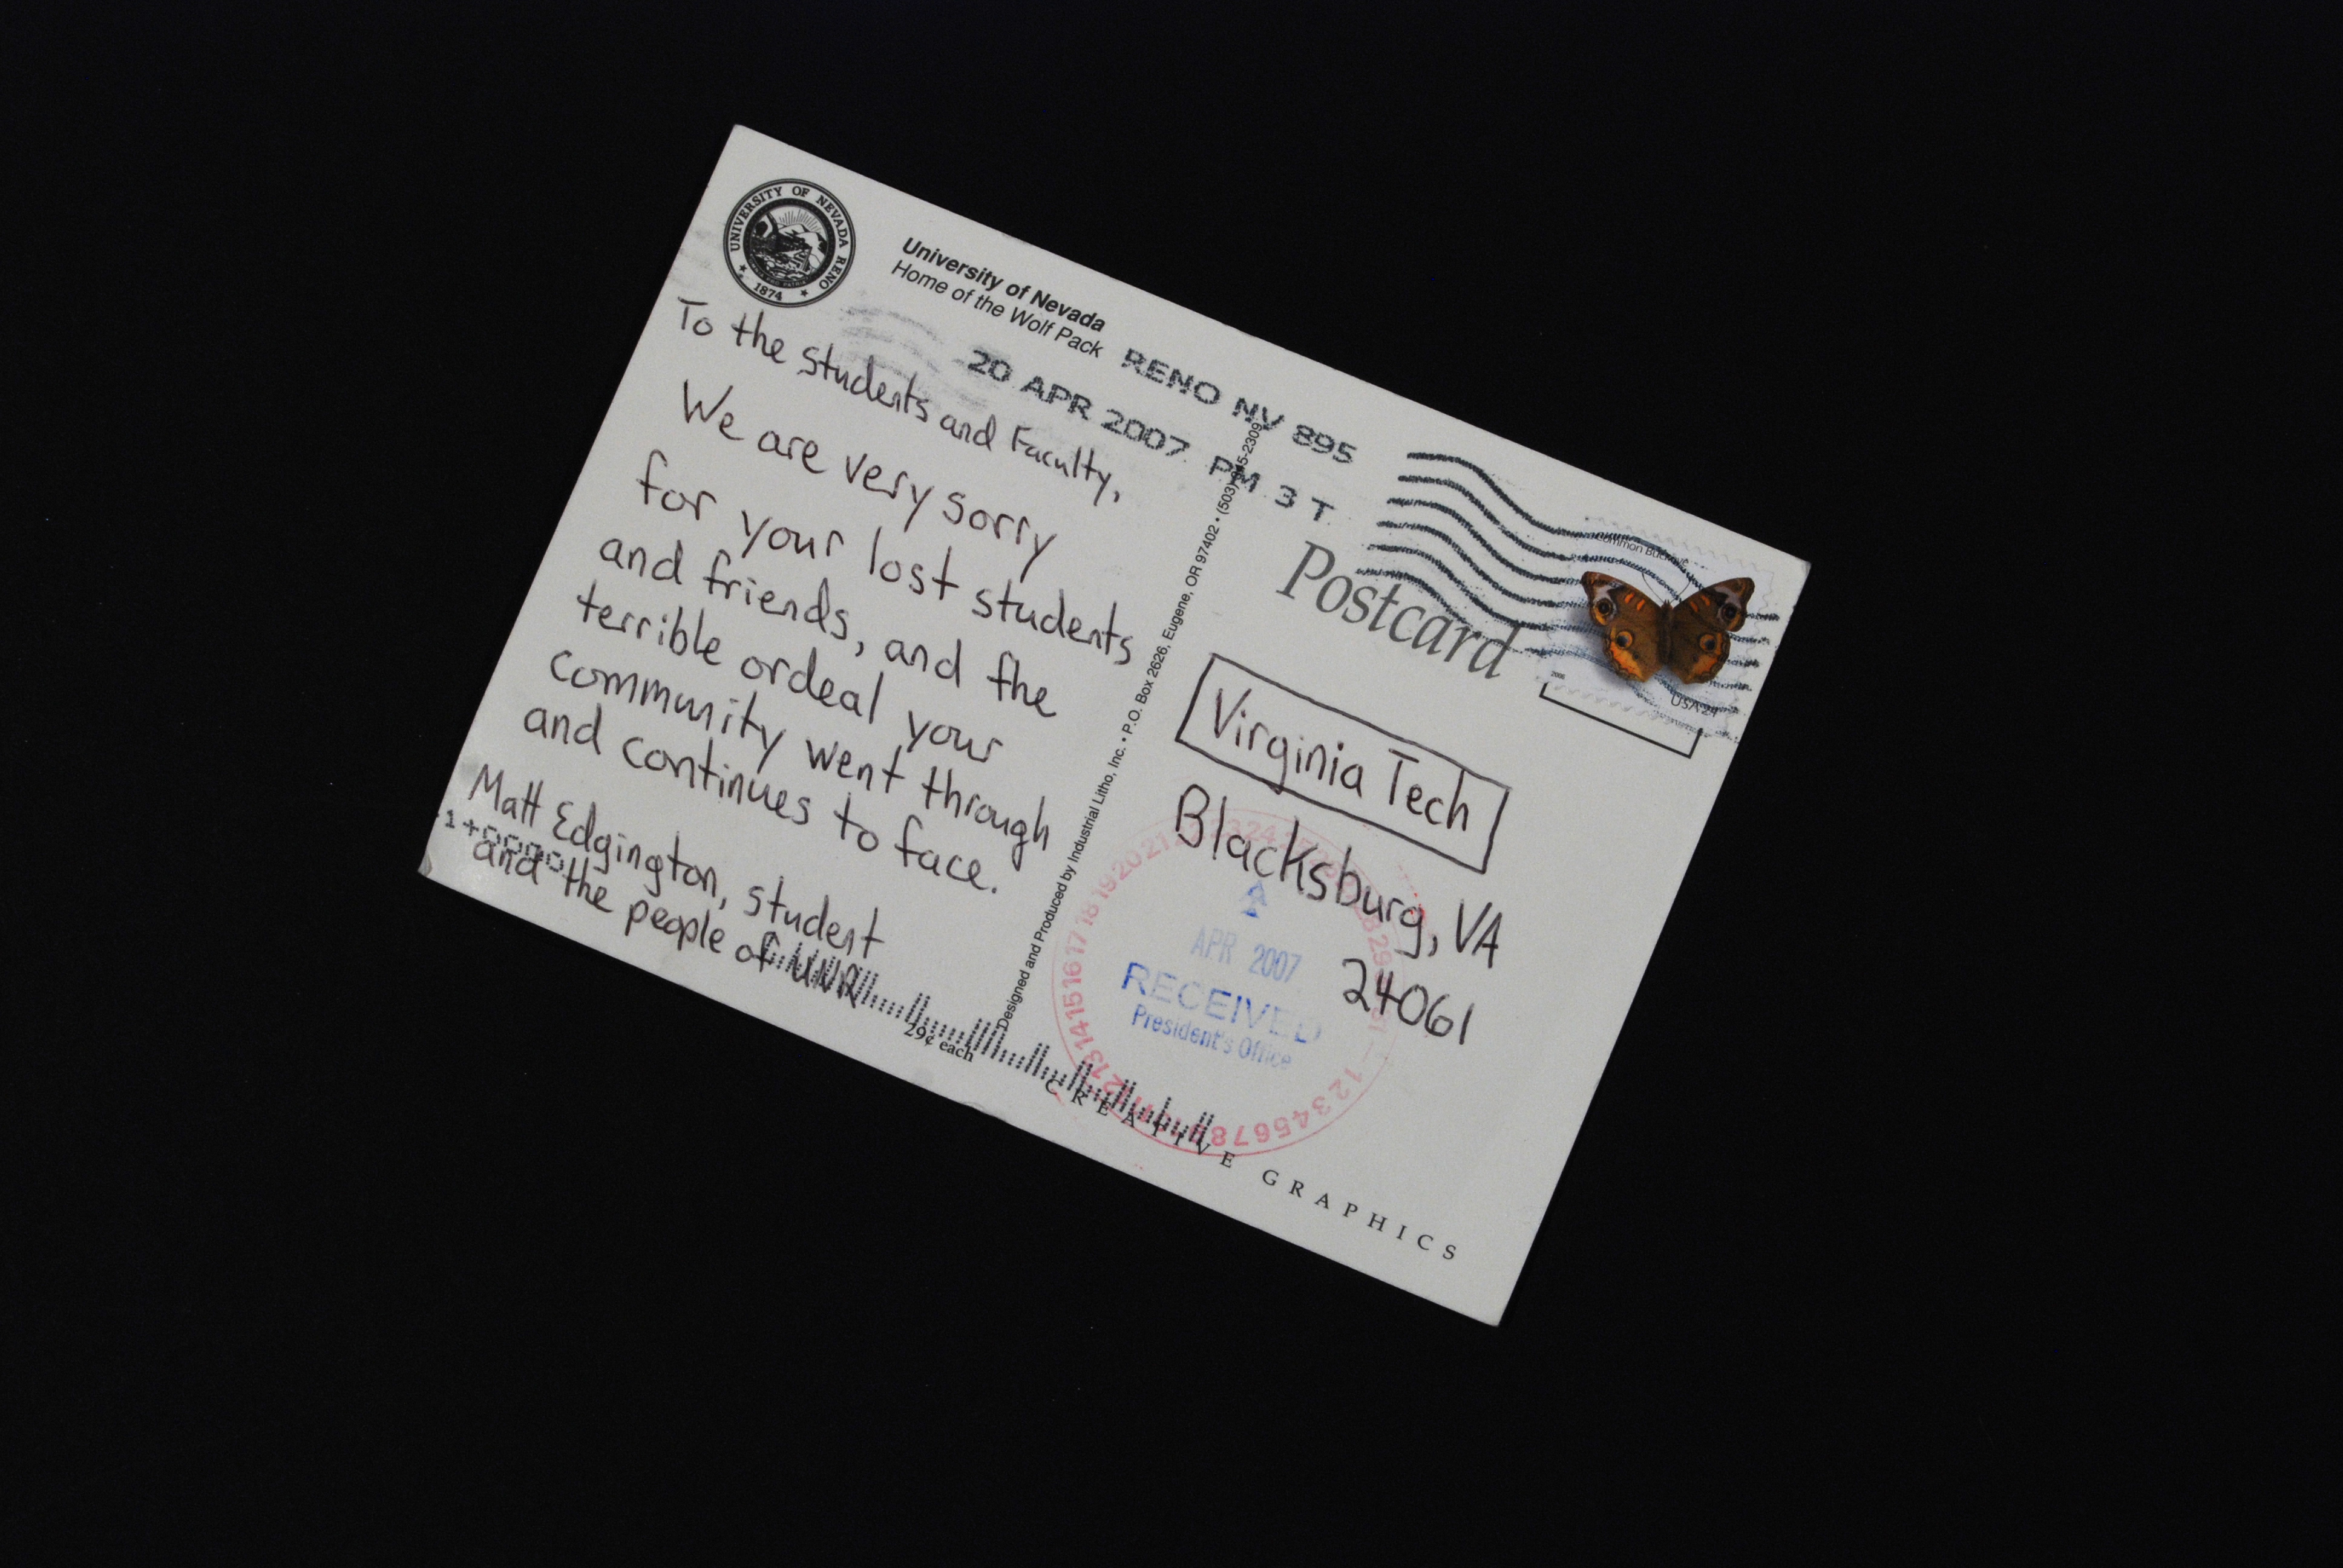 UNIVERSITY OF NEVADA RENO
1874
University of Nevada
Home of the Wolf Pack
RENO NV 895
20 APR 2007 PM 3 T
To the students and Faculty,
We are very sorry
for your lost students
and friends, and the
terrible ordeal your
community went through
and continues to face.
Matt Edgington, student
and the people of UNR
29¢ each
Designed and Produced by Industrial Litho, Inc. • P.O. Box 2626, Eugene, OR 97402 • (503)
Postcard
Common
USA 24
Virginia Tech
Blacksburg, VA
24061
APR 2007
RECEIVED
President's Office
CREATIVE GRAPHICS